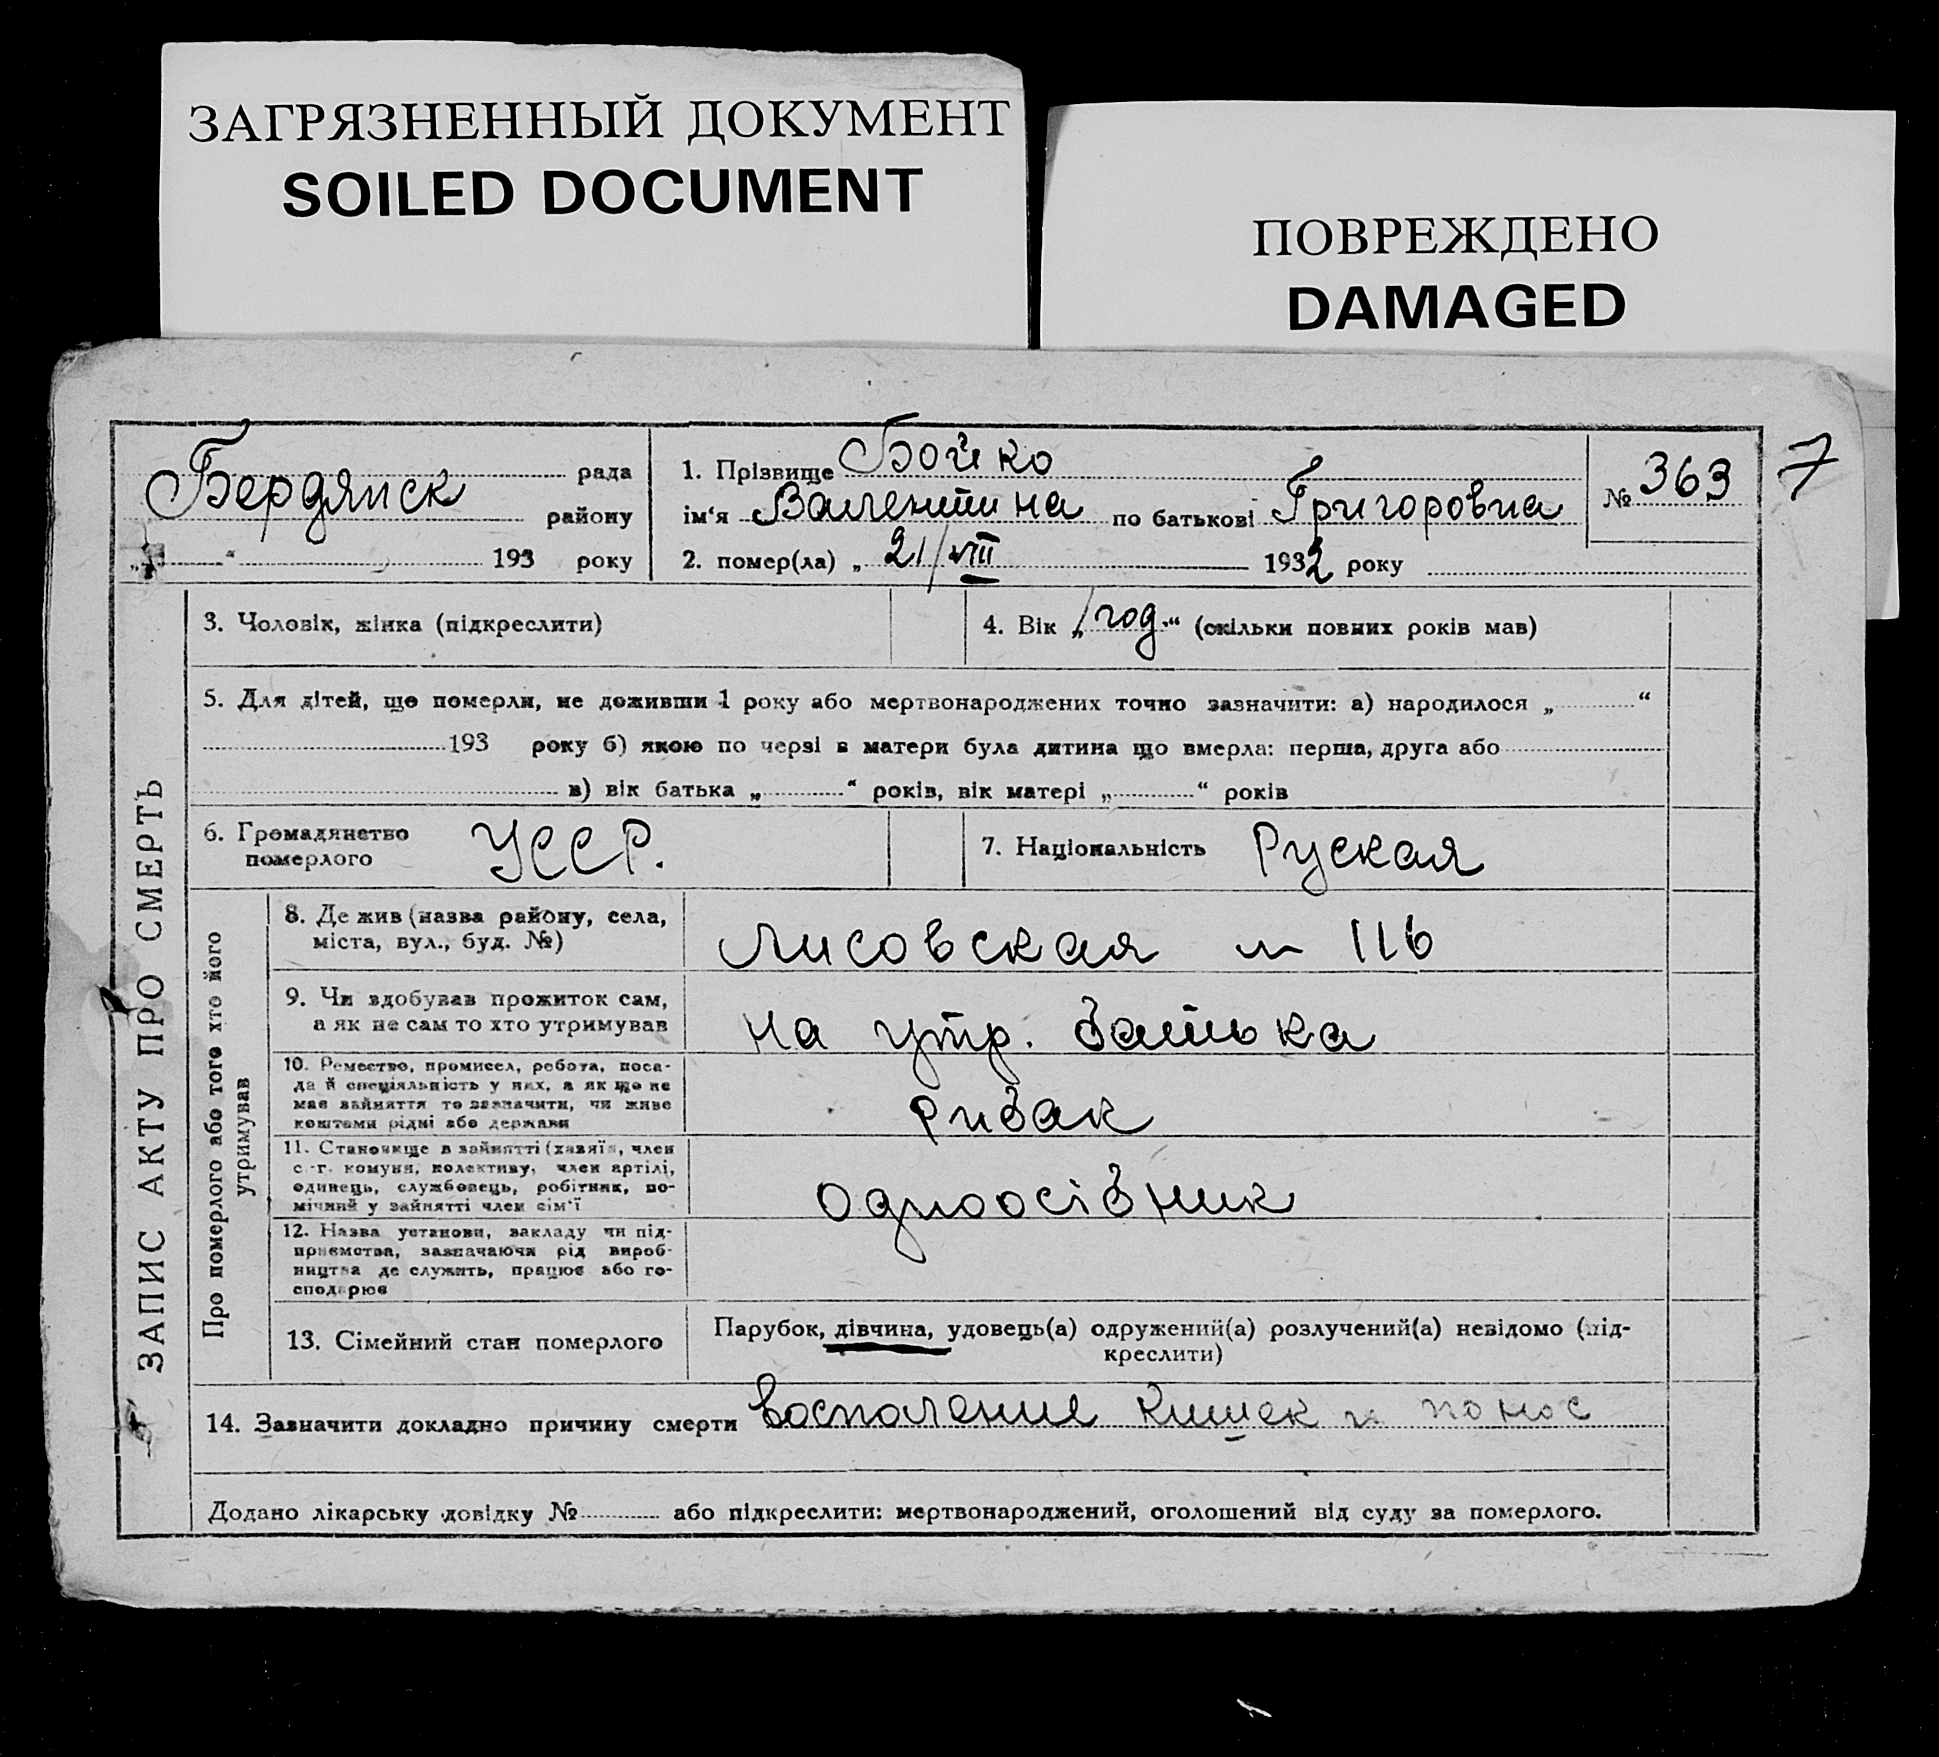 ЗАГРЯЗНЕННЫЙ ДОКУМЕНТ
SOILED DOCUMENT
ПОВРЕЖДЕНО
DAMAGED
Бердянск
рада
району
„ “ 193 року
1. Прізвище Бойко
ім‘я Валентина по батькові Григоровна
2. помер(ла) „ 21/VIII 1932 року
№ 363
7
ЗАПИС АКТУ ПРО СМЕРТЬ
3. Чоловік, жінка (підкреслити)
4. Вік „ 1 год. “ (скільки повних років мав)
5. Для дітей, що померли, не доживши 1 року або мертвонароджених точно зазначити: а) народилося „ “
193 року б) якою по черзі в матери була дитина що вмерла: перша, друга або
в) вік батька „ “ років, вік матері „ “ років
6. Громадянство
померлого
УССР.
7. Національність Руская
Про померлого або того хто його
утримував
8. Де жив (назва району, села,
міста, вул., буд. №)
Лисовская 116
9. Чи здобував прожиток сам,
а як не сам то хто утримував
на утр. батька
10. Ремество, промисел, робота, поса-
да й спеціяльність у них, а як що не
має зайняття то зазначити, чи живе
коштами рідні або держави
рибак
11. Становище в зайнятті (хазяїн, член
с.-г. комуни, колективу, член артілі,
одинець, службовець, робітник, по-
мічний у зайнятті член сім‘ї
одноосібник
12. Назва установи, закладу чи під-
приємства, зазначаючи рід вироб-
ництва де служить, працює або го-
сподарює
13. Сімейний стан померлого
Парубок, дівчина, удовець(а) одружений(а) розлучений(а) невідомо (під-
креслити)
14. Зазначити докладно причину смерти восполение кишек и понос
Додано лікарську довідку № або підкреслити: мертвонароджений, оголошений від суду за померлого.